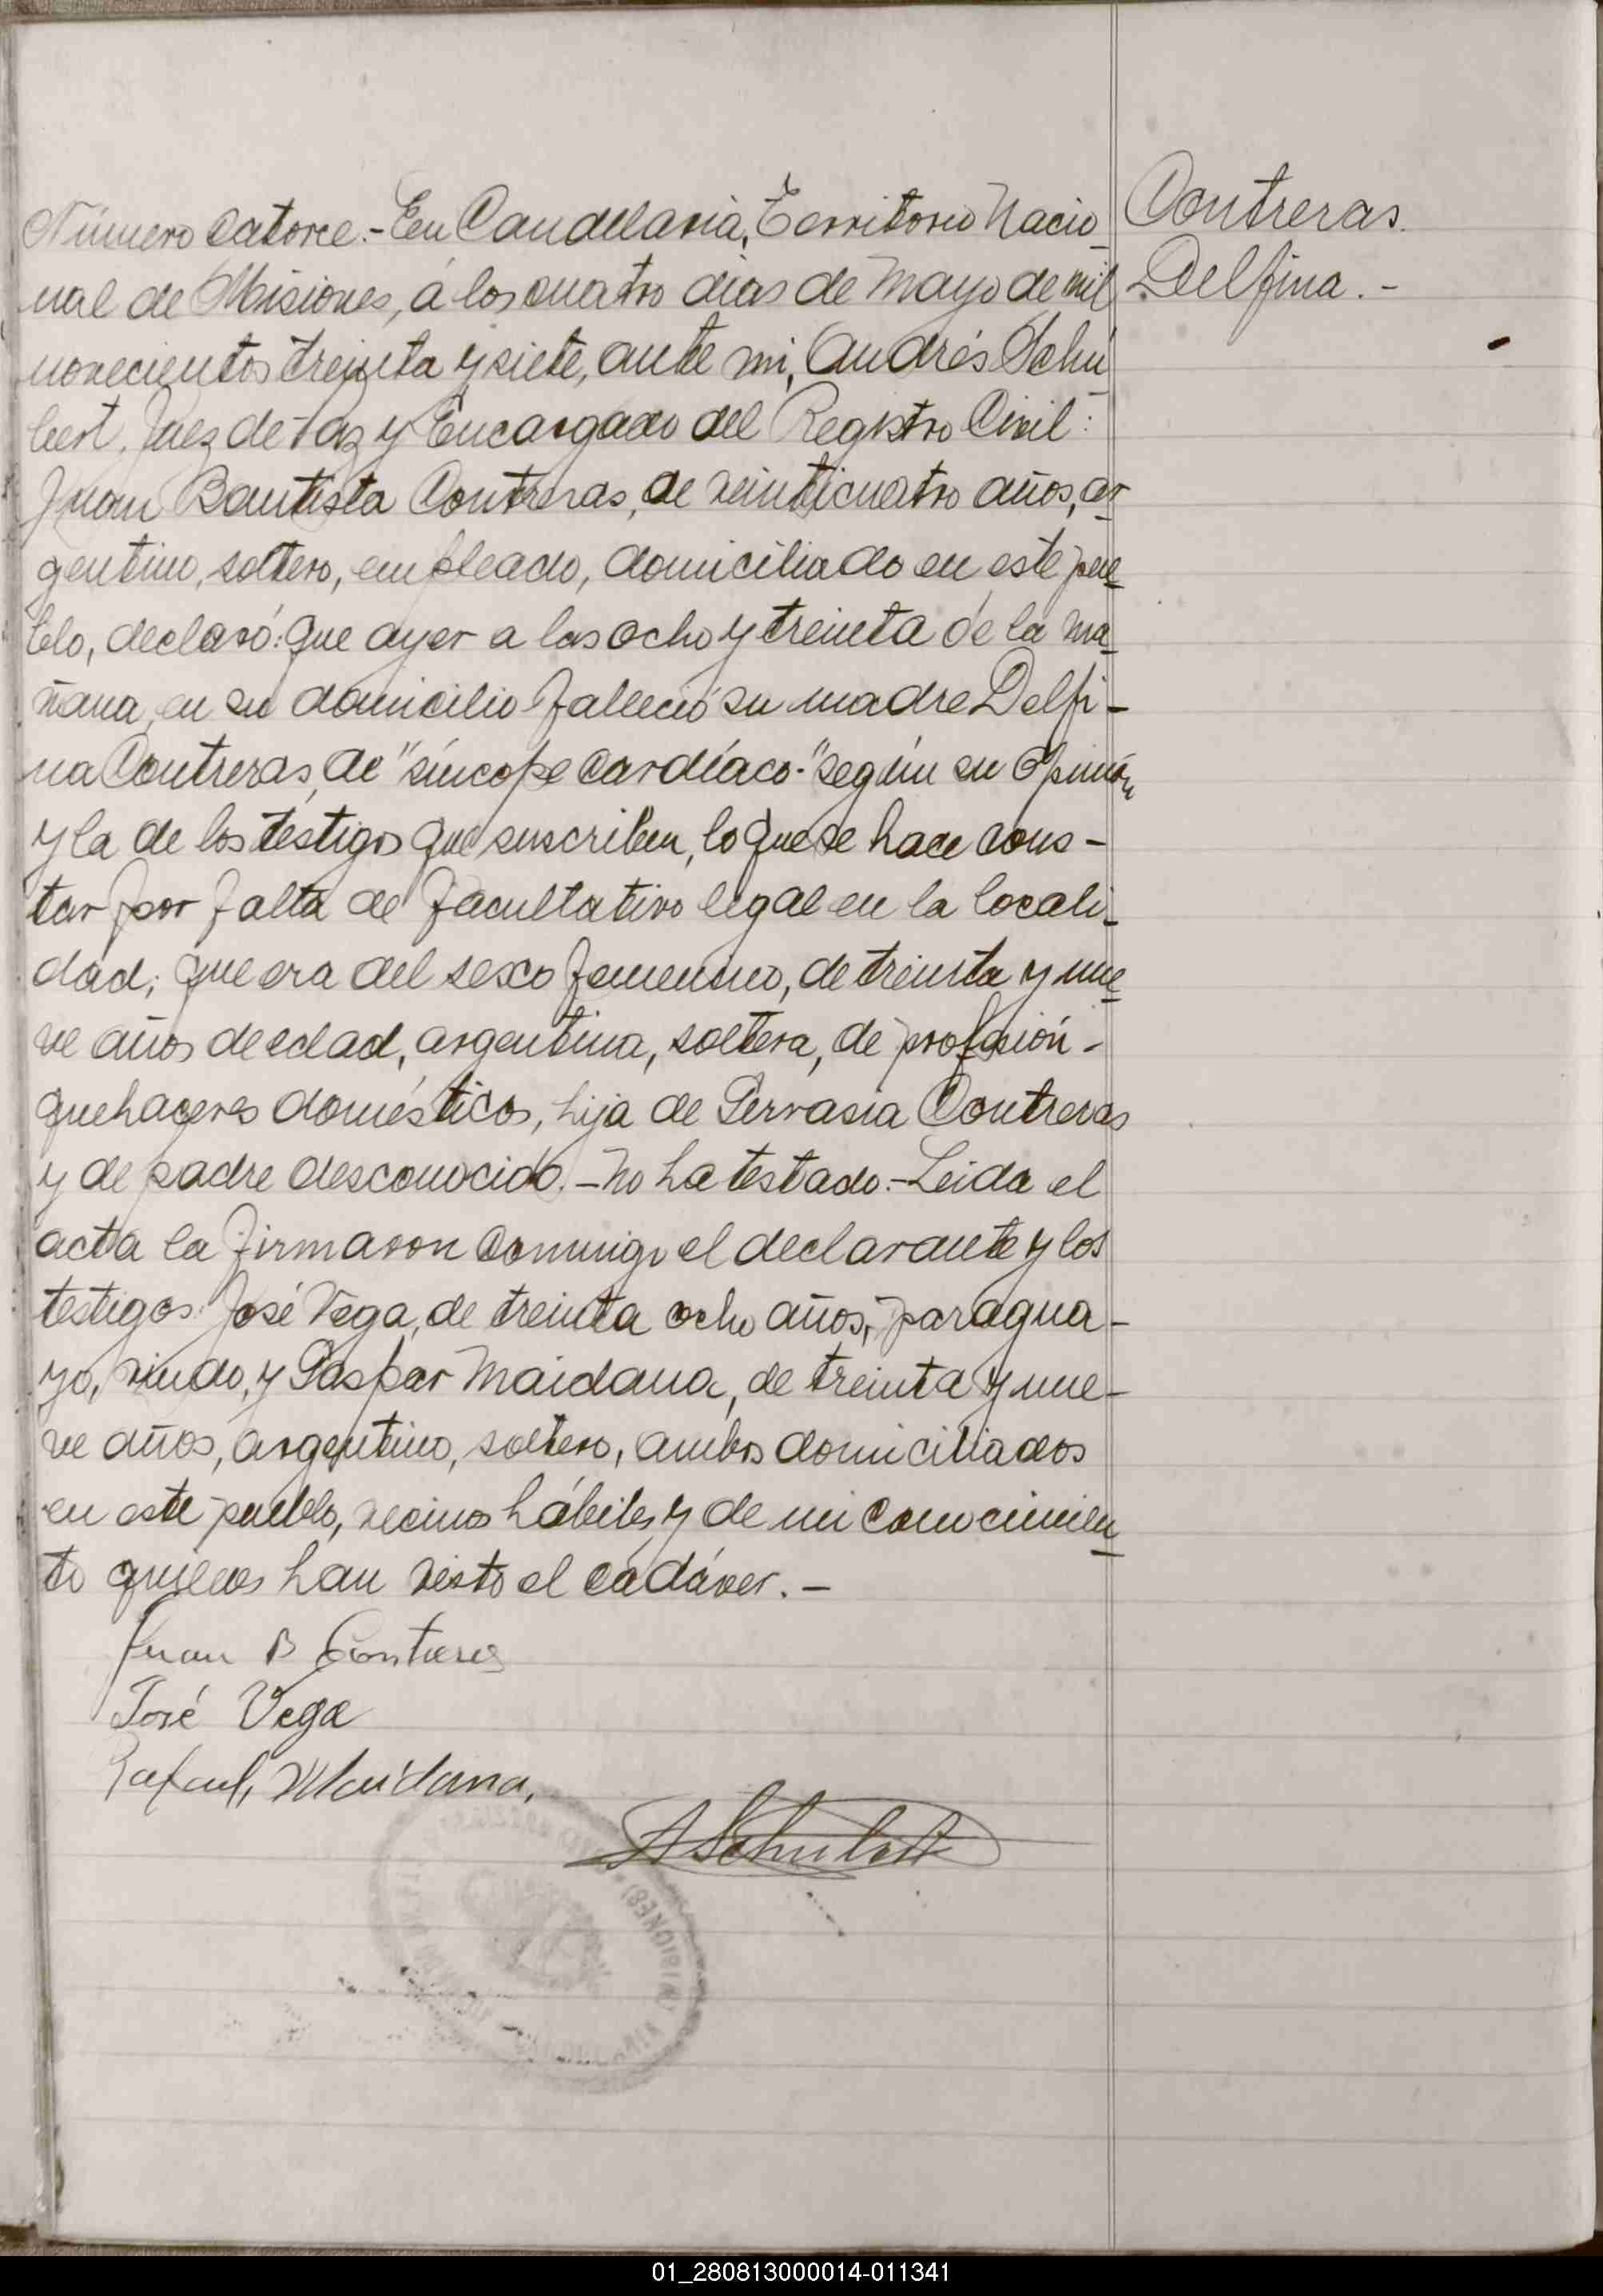 Número catorce.- En Candelaria, Territorio Nacio-
nal de Misiones, á los cuatro dias de Mayo de mil
novecientos treinta y siete, ante mi, Andrés Schu-
bert, Juez de Paz y Encargado del Registro Civil:
Juan Bautista Contreras, de veinticuatro años, ar-
gentino, soltero, empleado, domiciliado en este pue-
blo, declaró: que ayer a las ocho y treinta de la ma-
ñana, en su domicilio falleció su madre Delfi-
na Contreras, de "síncope cardíaco" según su opinión
y la de los testigos que suscriben, lo que se hace cons-
tar por falta de facultativo legal en la locali-
dad; que era del sexo femenino, de treinta y nue-
ve años de edad, argentina, soltera, de profesión -
quehaceres domésticos, hija de Gervasia Contreras
y de padre desconocido. - No ha testado.- Leida el
acta la firmaron conmigo el declarante y los
testigos: José Vega, de treinta ocho años, paragua-
yo, viudo, y Gaspar Maidana, de treinta y nue-
ve años, argentino, soltero, ambos domiciliados
en este pueblo, vecinos hábiles y de mi conocimien-
to quienes han visto el cadáver. -
Contreras.
Delfina. -
Juan B Contreras
José Vega
Maidana,
A Schubert
(MISIONES)
01_280813000014-011341